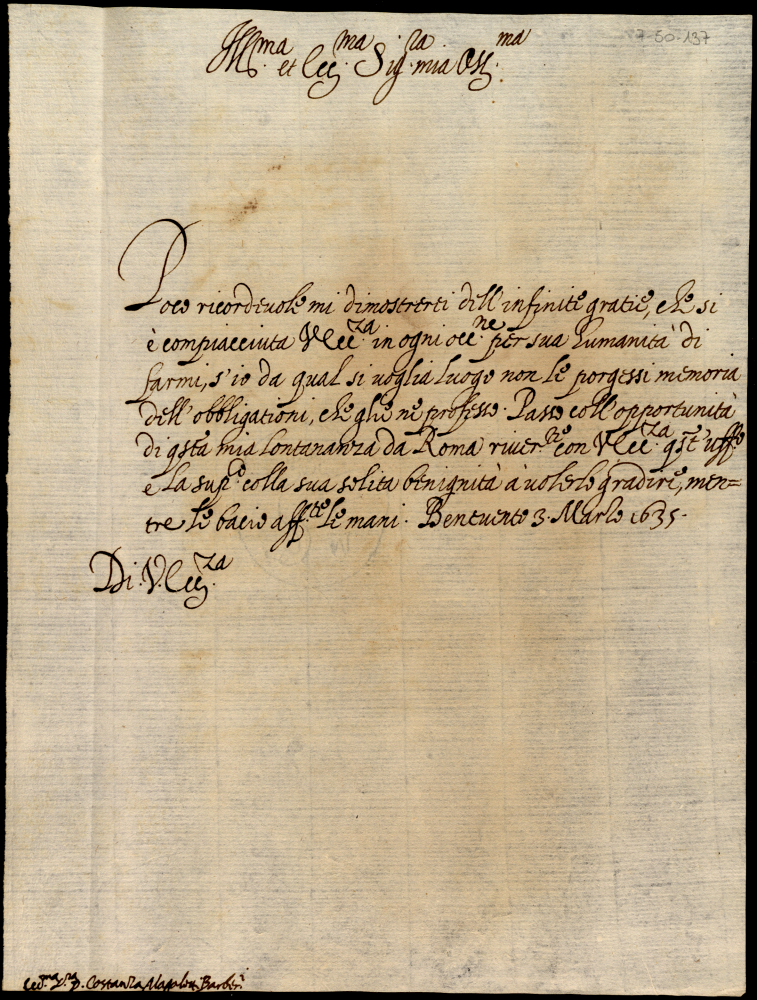 7-50-137
Ill.ma et Ecc.ma Sig.ra mia Oss.ma
Poco ricordevole mi dimostrerei dell'infinite gratie, che si
è compiacciuta V. Ecc.za in ogni occ.ne per sua humanità di
farmi, s'io da qual si voglia luogo non le porgessi memoria
dell'obbligationi, che glie ne professo. Passo coll'opportunità
di qsta mia lontananza da Roma river.te con V. Ecc.za qst' uff.o
e la supp.co colla sua solita benignità à volerlo gradire, men=
tre le bacio aff.te le mani. Benevento 3. Marzo 1635.
Di V. Ecc.za
Ecc.ma S.ra D. Costanza Magalotti Barber.i